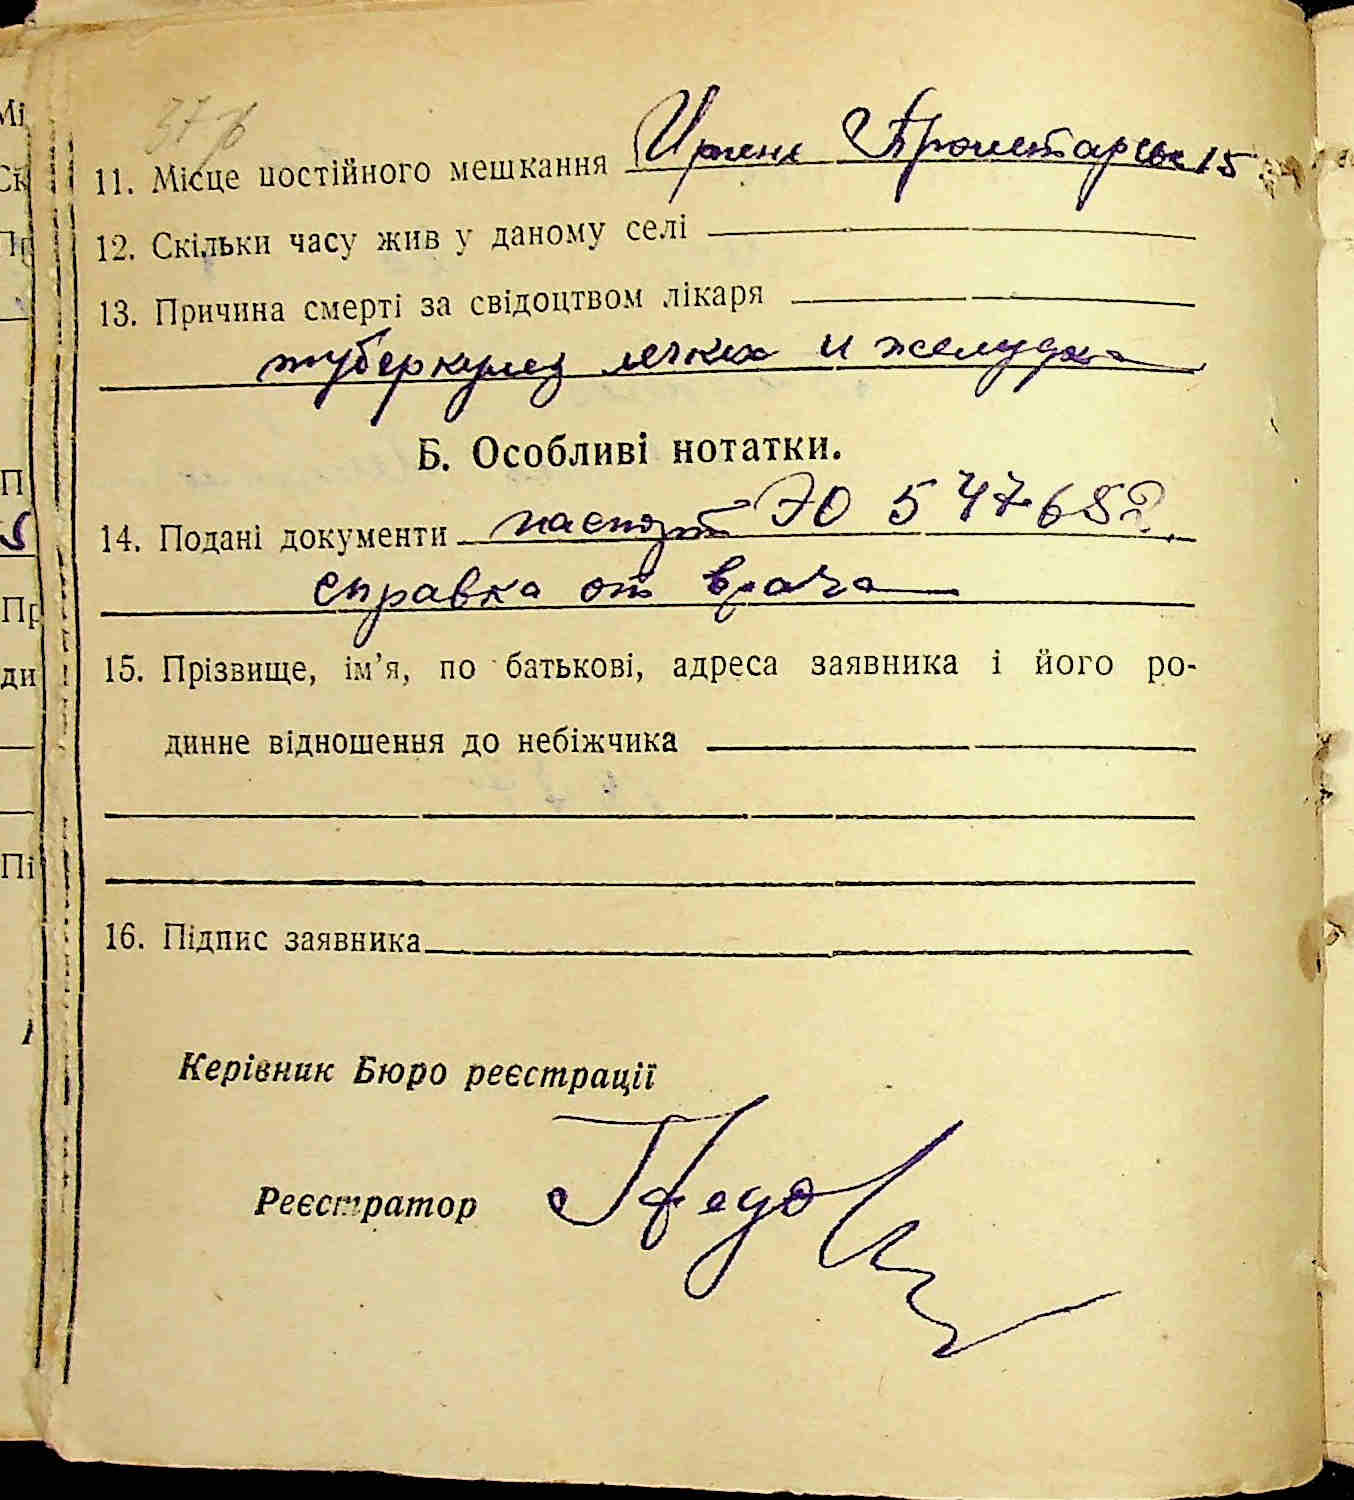 37
11. Місце постійного мешкання Ирпень Пролетарськ 15
12. Скільки часу жив у даному селі
13. Причина смерті за свідоцтвом лікаря
туберкулез легких и желудка
Б. Особливі нотатки.
14. Подані документи паспорт ЭЮ 547652
справка от врача
15. Прізвище, ім’я, по батькові, адреса заявника і його ро-
динне відношення до небіжчика
16. Підпис заявника
Керівник Бюро реєстрації
Реєстратор